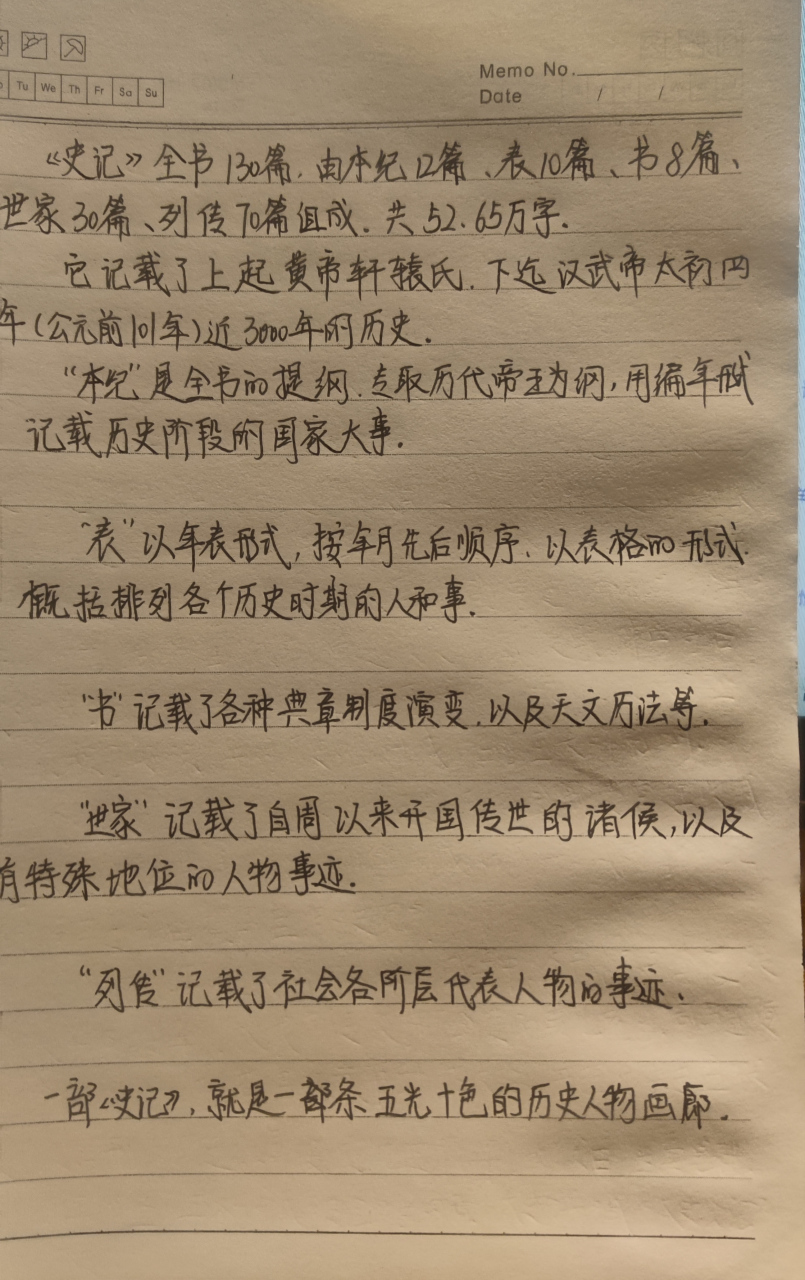 Tu We Th Fr Sa Su
Memo No.
Date / /
《史记》全书130篇.由本纪12篇、表10篇、书8篇、
世家30篇、列传70篇组成.共52.65万字.
它记载了上起黄帝轩辕氏.下迄汉武帝太初四
年(公元前101年)近3000年的历史.
“本纪”是全书的提纲.专取历代帝王为纲,用编年形式
记载历史阶段的国家大事.
“表”以年表形式,按年月先后顺序.以表格的形式.
概括排列各个历史时期的人和事.
“书”记载了各种典章制度演变.以及天文历法等.
“世家”记载了自周以来开国传世的诸候,以及
有特殊地位的人物事迹.
“列传”记载了社会各阶层代表人物的事迹.
一部《史记》,就是一部条五光十色的历史人物画廊.